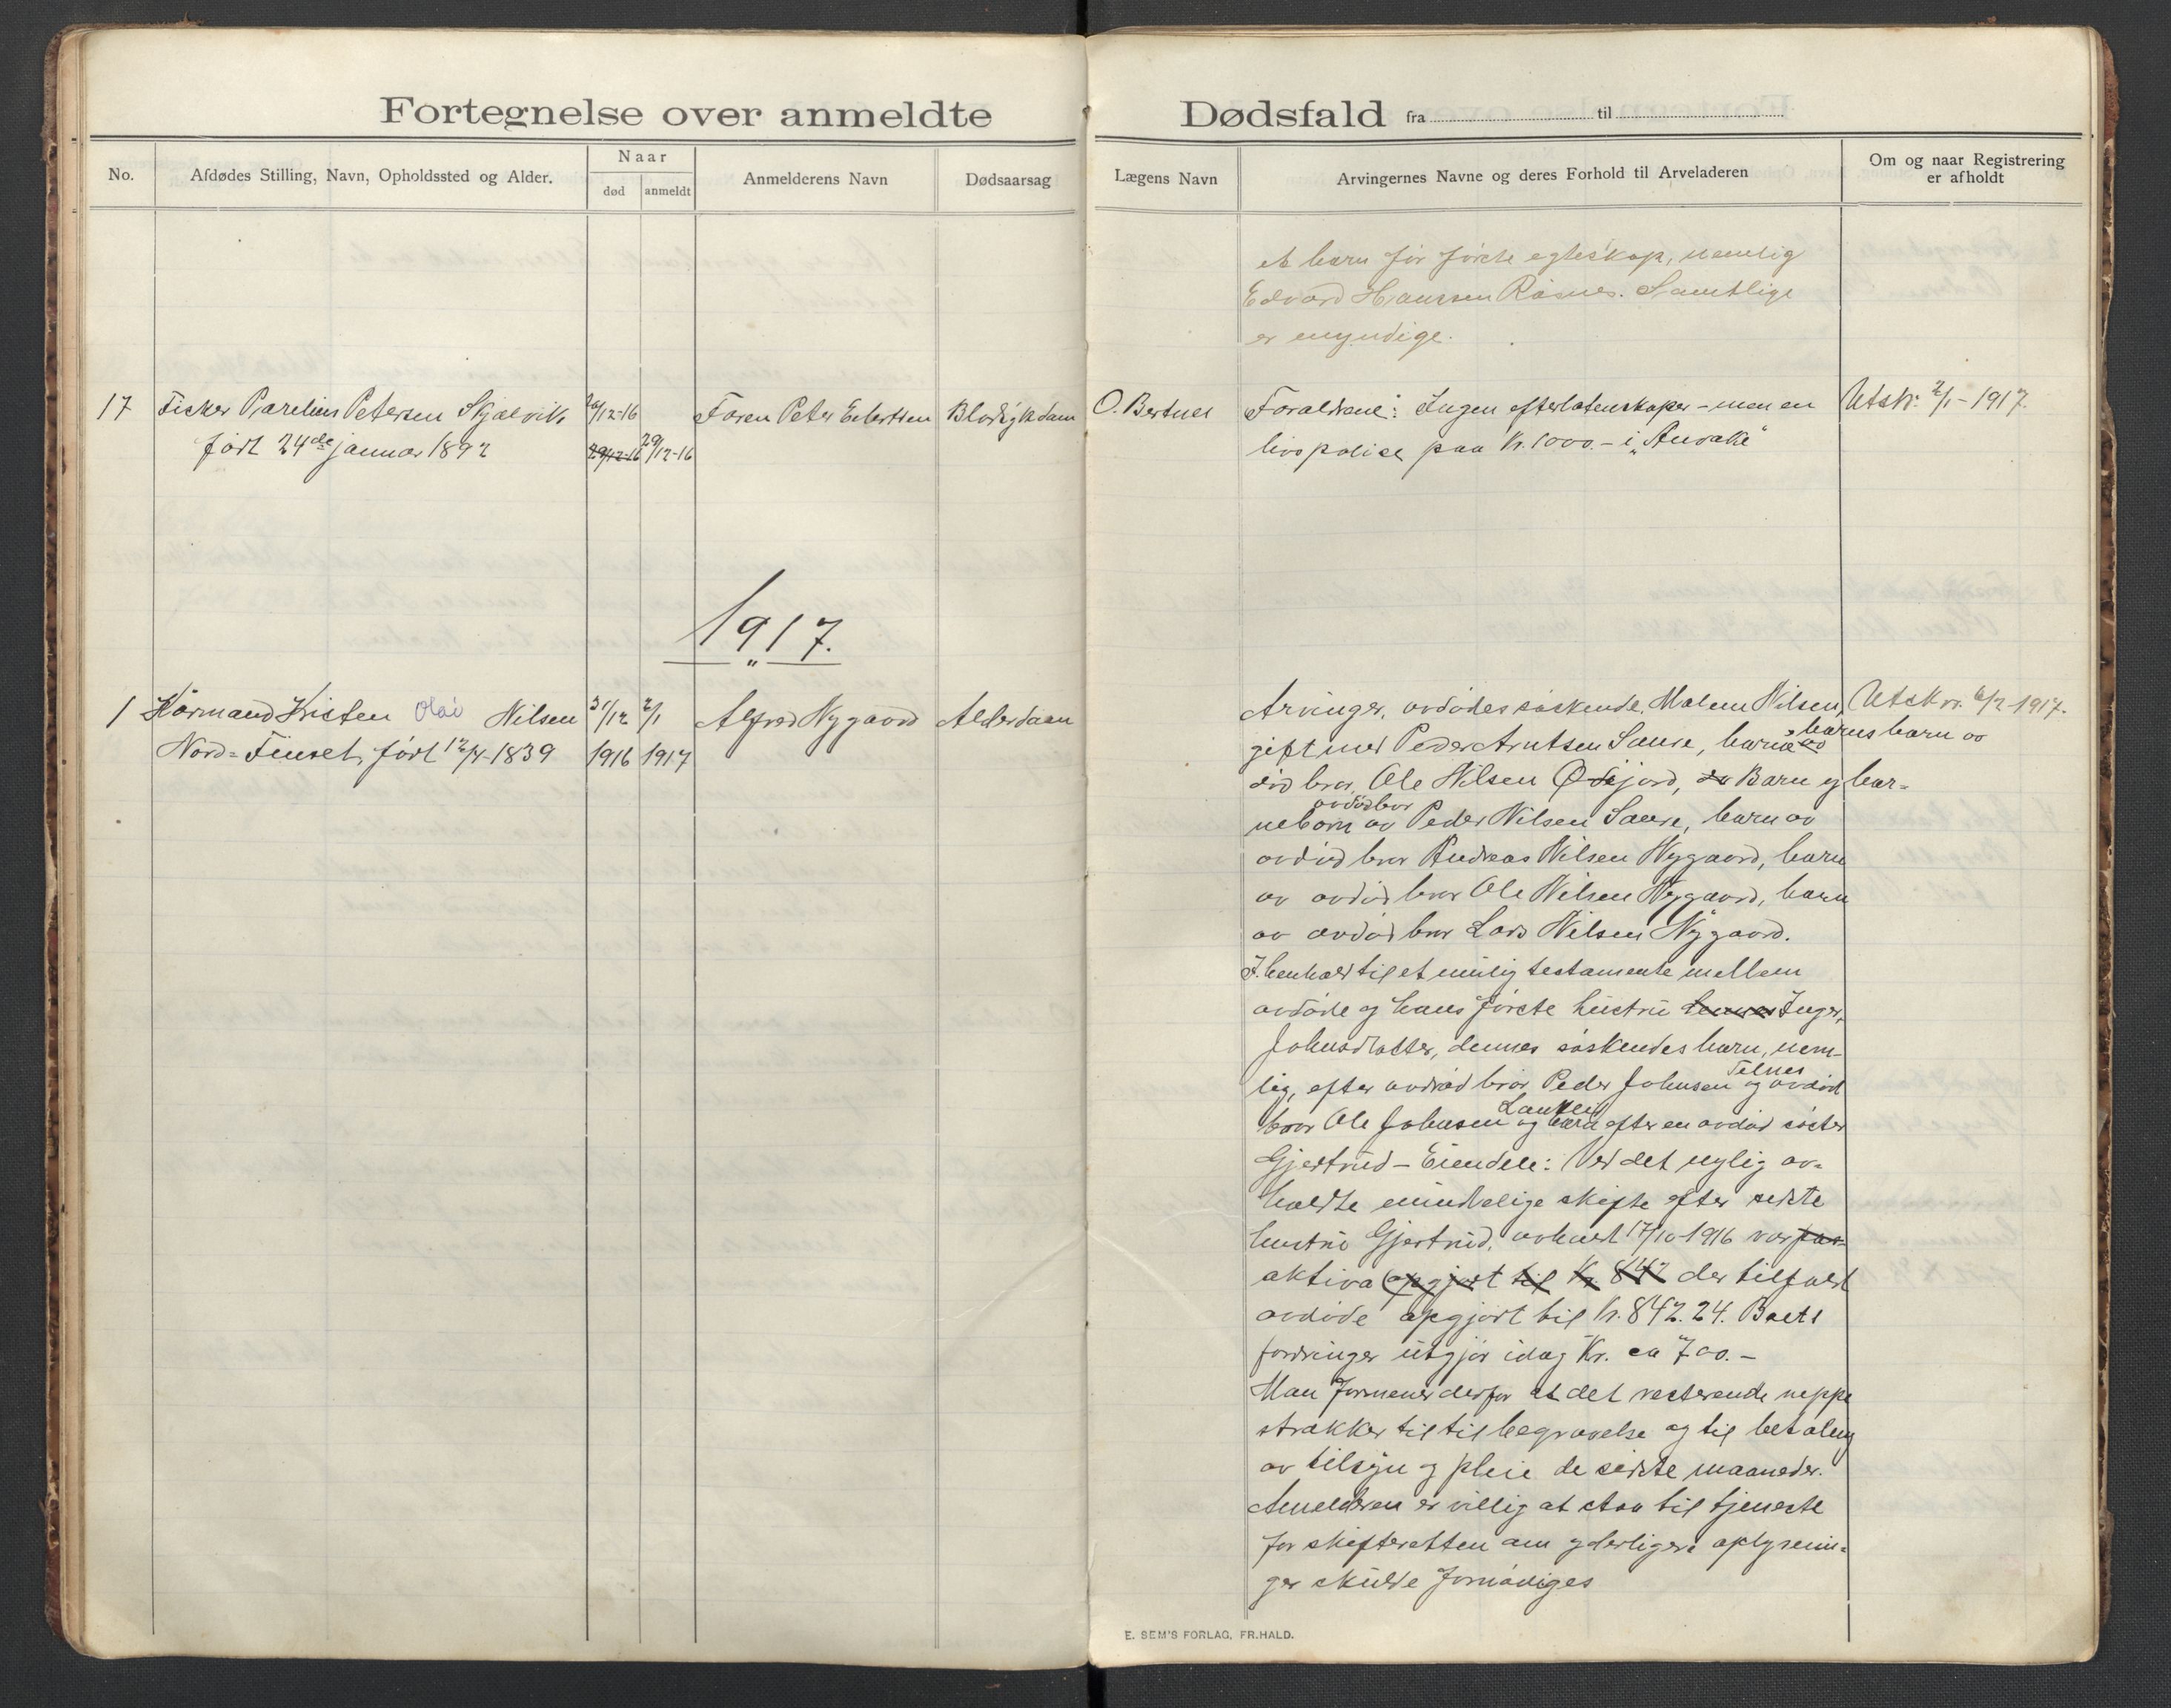 Fortegnelse over anmeldte Dødsfald fra til
No.
Afdødes Stilling, Navn, Opholdssted og Alder.
Naar
død
anmeldt
Anmelderens Navn
Dødsaarsag
Lægens Navn
Arvingernes Navne og deres Forhold til Arveladeren
Om og naar Registrering
er afholdt
et barn før første egteskap, nemlig
Edvard Hanssen Råsnes. Samtlige
er myndige.
17 Fisker Parelius Petersen Skjælvik 20/12-16 Faren Peter Eilertsen Blodsykdom O. Bertnes Forældrene: Ingen efterlatenskaper – men en Utskr. 2/1-1917.
født 24de januar 1892 29/12-16 29/12-16 livspolise paa kr. 1000.- i "Andvake"
1917.
1 Kårmand Kristen Olai Nilsen 31/12 2/1 Alfred Nygaard Alderdom Arvinger, avdødes søskende, Malene Nilsen, Utskr. 6/2-1917.
Nord-Finset, født 12/4-1839 1916 1917 gift med Peder Arntsen Saure, barn og barnsbarn av
død bror, Ole Nilsen Ødejord, av Barn og bar-
nebarn av avdød bror Peder Nilsen Saure, barn av
avdød bror Andreas Nilsen Nygaard, barn
av avdød bror Ole Nilsen Nygaard, barn
av avdød bror Lars Nilsen Nygaard.
I henhold til et mulig testamente mellem
avdøde og hans første hustru dennes Inger
Johnsdatter, dennes søskendes barn, nem-
lig, efter avdød bror Peder Johnsen Telnes og avdød
bror Ole Johnsen og barn efter en avdød søster
Gjertrud – Eiendele: Ved det nylig av-
holdte mindelige skifte efter sidste
hustru Gjertrud, avholdt 17/10-1916 var
aktiva opgjort til Kr. 842 der tilfaldt
avdøde opgjort til kr. 842.24. Boets
fordringer utgjør idag Kr. ca 700.-
Man formener derfor at det resterende neppe
strækker til til begravelse og til betaling
av tilsyn og pleie de sidste maaneder.
Anmelderen er villig at staa til tjeneste
for skifteretten om yderligere oplysnin-
ger skulde fornødiges
E. SEM'S FORLAG, FR.HALD.